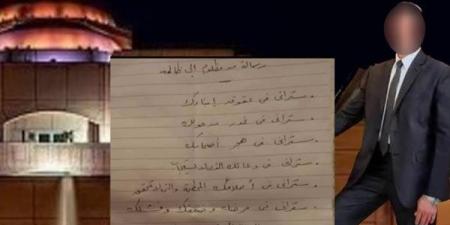 رسالة من مظلوم إلى ظالمه
ستراني في عقوق أبنائك
ستراني في
ستراني في هجر أصحابك
ستراني في دعائك الذي لا يستجاب
ستراني في أحلامك
ستراني في مرضك وضعفك وفشلك